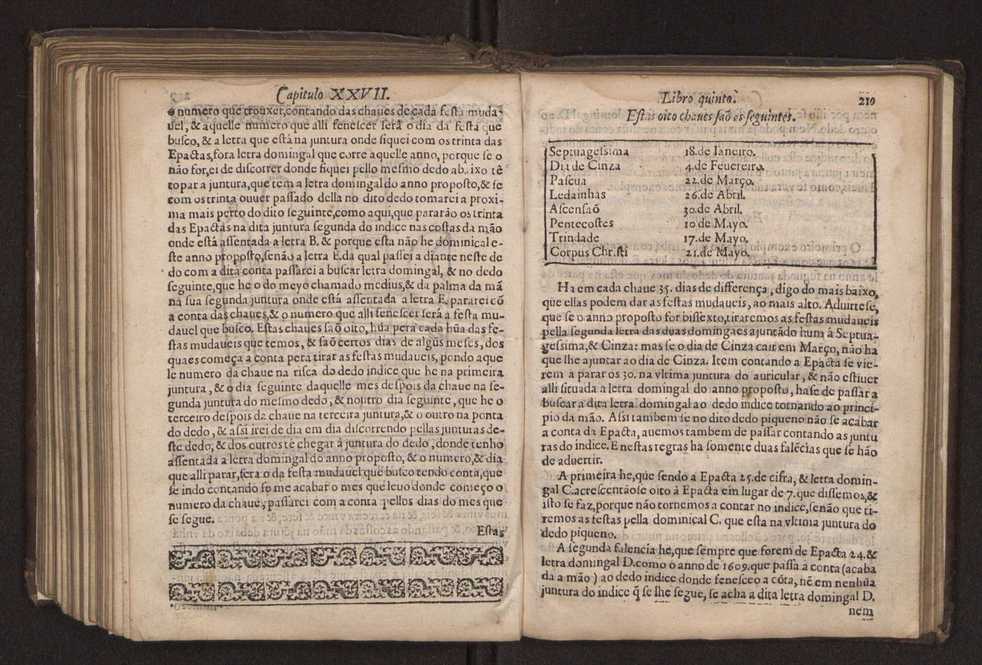 Capitulo XXVII.
o numero que trouxer, contando das chaues de cada festa muda-
uel, & aquelle numero que alli fenescer será o dia da festa que
busco, & a letra que está na juntura onde fiquei com os trinta das
Epactas, fora letra domingal que corre aquelle anno, porque se o
não for, ei de discorrer donde fiquei pello mesmo dedo abaixo tè
topar a juntura, que tem a letra domingal do anno proposto, & se
com os trinta ouuer passado della no dito dedo tomarei a proxi-
ma mais perto do dito seguinte, como aqui, que pararão os trinta
das Epactas na dita juntura segunda do indice nas costas da mão
onde está assentada a letra B. & porque esta não he dominical e-
ste anno proposto, senão a letra E. da qual passei a diante neste de
do com a dita conta passarei a buscar letra domingal, & no dedo
seguinte, que he o do meyo chamado medius, & da palma da mã
na sua segunda juntura onde está assentada a letra E. pararei cō
a conta das chaues, & o numero que alli fenescer será a festa mu-
dauel que busco. Estas chaues saõ oito, hũa pera cada hũa das fe-
stas mudaueis que temos, & saõ certos dias de algũs meses, dos
quaes começa a conta pera tirar as festas mudaueis, pondo aque
le numero da chaue na risca do dedo indice que he na primeira
juntura, & o dia seguinte daquelle mes despois da chaue na se-
gunda juntura do mesmo dedo, & noutro dia seguinte, que he o
terceiro despois da chaue na terceira juntura, & o outro na ponta
do dedo, & assi irei de dia em dia discorrendo pellas junturas de-
ste dedo, & dos outros tè chegar á juntura do dedo, donde tenho
assentada a letra domingal do anno proposto, & o numero, & dia
que alli parar, sera o da festa mudauel que busco tendo conta, que
se indo contando se me acabar o mes que leuo donde começo o
numero da chaue, passarei com a conta pellos dias do mes que
se segue.
Estas
Libro quinto.
210
Estas oito chaues saõ es seguintes.
Septuagesima 18. de Ianeiro.
Dia de Cinza 4. de Feuereiro.
Pascua 22. de Março.
Ledainhas 26. de Abril.
Ascensaõ 30. de Abril.
Pentecostes 10 de Mayo.
Trindade 17. de Mayo.
Corpus Christi 21. de Mayo.
Ha em cada chaue 35. dias de differença, digo do mais baixo,
que ellas podem dar as festas mudaueis, ao mais alto. Aduirtese,
que se o anno proposto for bissexto, tiraremos as festas mudaueis
pella segunda letra das duas domingaes ajuntãdo hum à Septua-
gesima, & Cinza: mas se o dia de Cinza cair em Março, não ha
que lhe ajuntar ao dia de Cinza. Item contando a Epacta se vie-
rem a parar os 30. na vltima juntura do auricular, & não estiuer
alli situada a letra domingal do anno proposto, hase de passar a
buscar a dita letra domingal ao dedo indice tornando ao princi-
pio da mão. Assi tambem se no dito dedo piqueno não se acabar
a conta da Epacta, auemos tambem de passar contando as juntu
ras do indice. E nestas regras ha somente duas falẽcias que se hão
de aduertir.
A primeira he, que sendo a Epacta 25. de cifra, & letra domin-
gal C. acrescentãose oito à Epacta em lugar de 7. que dissemos, &
isto se faz, porque não tornemos a contar no indice, senão que ti-
remos as festas pella dominical C. que esta na vltima juntura do
dedo piqueno.
A segunda falencia he, que sempre que forem de Epacta 24. &
letra domingal D. como o anno de 1609. que passa a conta (acaba
da a mão) ao dedo indice donde fenesceo a cōta, nẽ em nenhũa
juntura do indice q̃ se lhe segue, se acha a dita letra domingal D.
nem